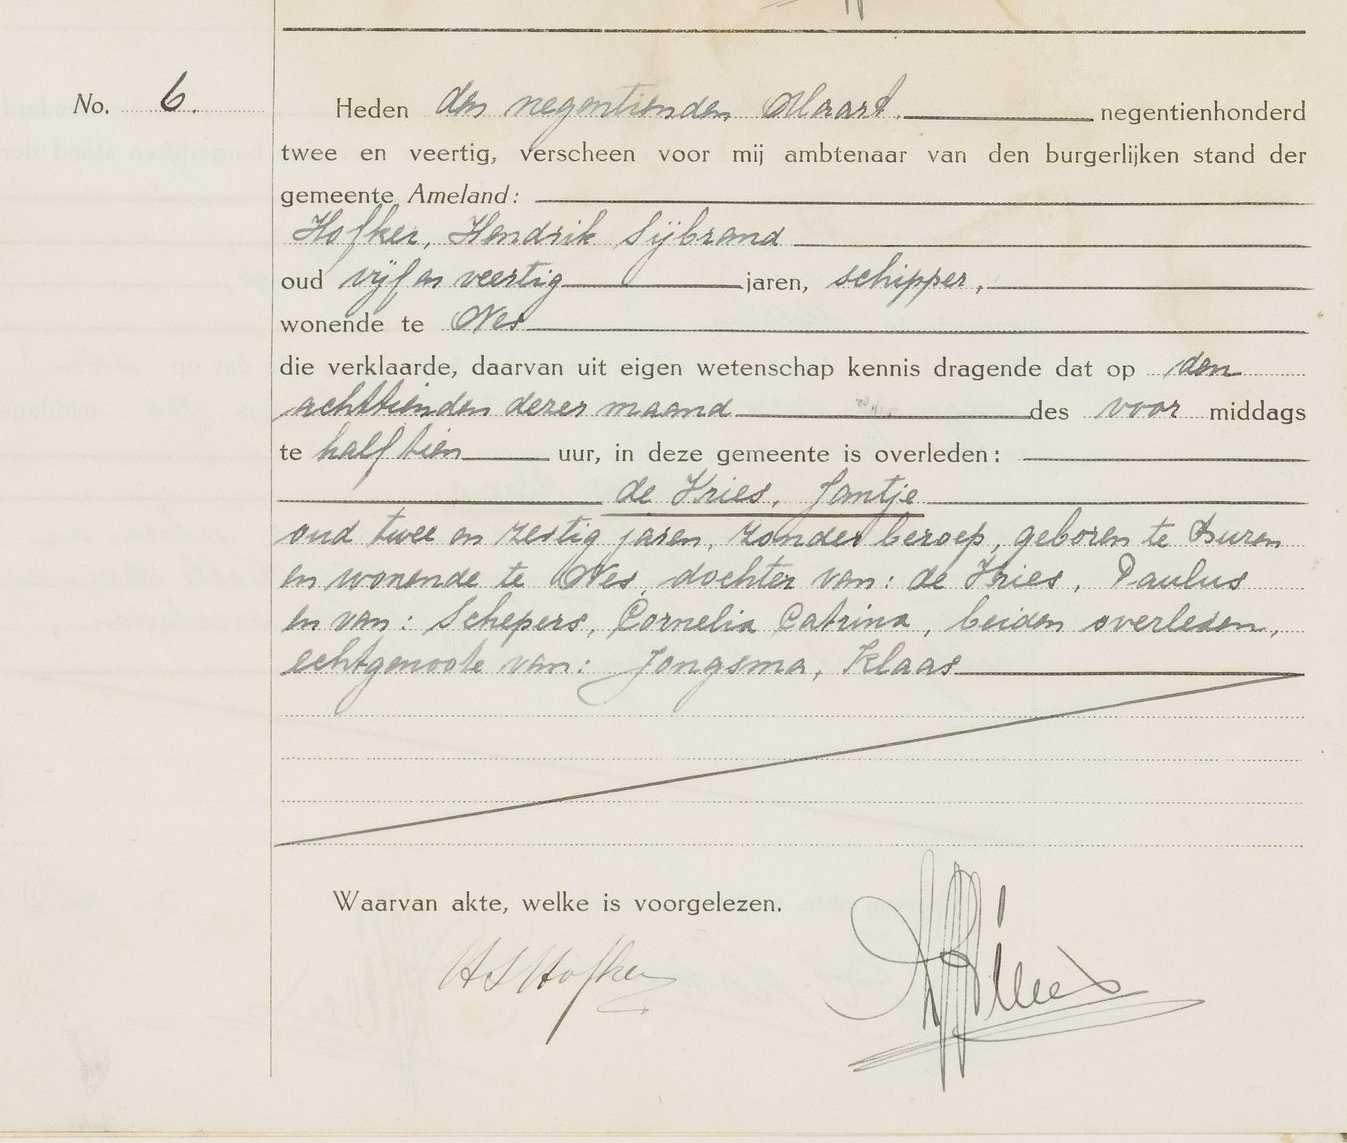 No. 6.
Heden den negentienden Maart. negentienhonderd
twee en veertig, verscheen voor mij ambtenaar van den burgerlijken stand der
gemeente Ameland:
Hofker, Hendrik Sijbrand
oud vijf en veertig jaren, schipper,
wonende te Nes
die verklaarde, daarvan uit eigen wetenschap kennis dragende dat op den
achttienden dezer maand des voor middags
te half tien uur, in deze gemeente is overleden:
de Vries, Jantje
oud twee en zestig jaren, zonder beroep, geboren te Buren
en wonende te Nes, dochter van: de Vries, Paulus
en van: Schepers, Cornelia Catrina, beiden overleden,
echtgenoote van: Jongsma, Klaas
Waarvan akte, welke is voorgelezen.
H S Hofker